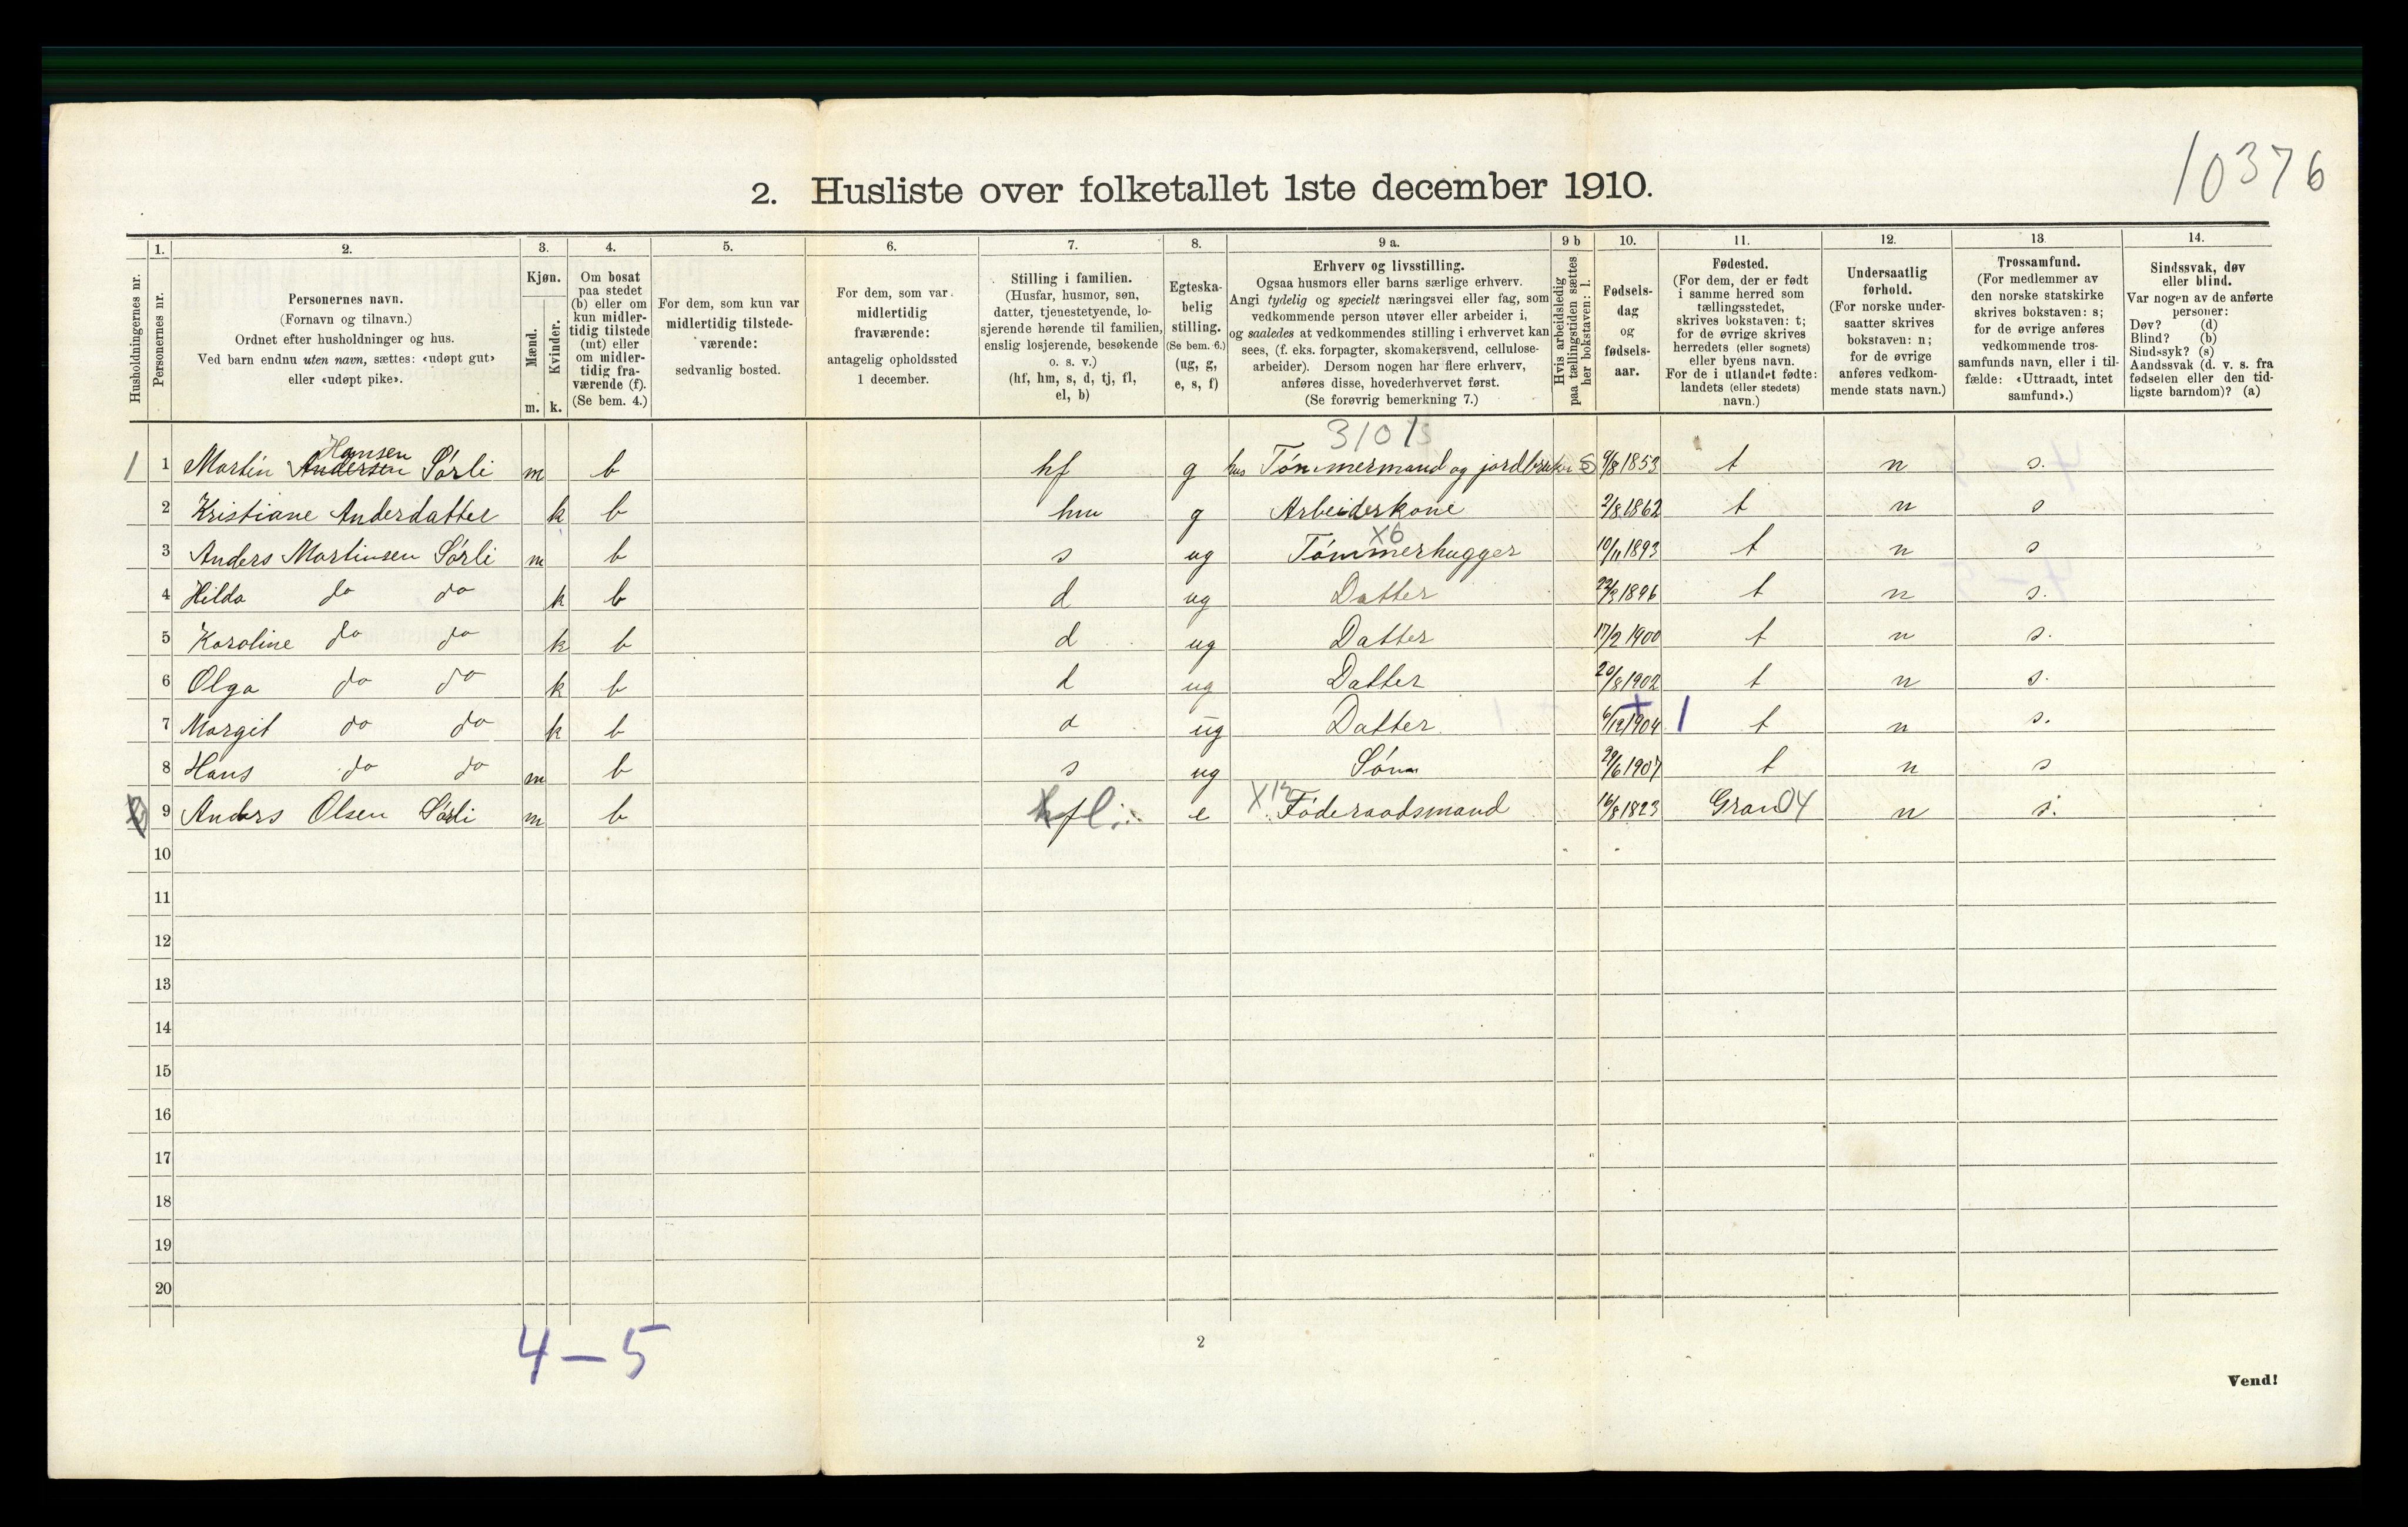 10376
2. Husliste over folketallet 1ste december 1910.
Husholdningernes nr.
1.
Personernes nr.
2.
Personernes navn.
(Fornavn og tilnavn.)
Ordnet efter husholdninger og hus.
Ved barn endnu uten navn, sættes: «udøpt gut»
eller «udøpt pike».
3.
Kjøn.
Mænd.
Kvinder.
m. k.
4.
Om bosat
paa stedet
(b) eller om
kun midler-
tidig tilstede
(mt) eller
om midler-
tidig fra-
værende (f).
(Se bem. 4.)
5.
For dem, som kun var
midlertidig tilstede-
værende:
sedvanlig bosted.
6.
For dem, som var
midlertidig
fraværende:
antagelig opholdssted
1 december.
7.
Stilling i familien.
(Husfar, husmor, søn,
datter, tjenestetyende, lo-
sjerende hørende til familien,
enslig losjerende, besøkende
o. s. v.)
(hf, hm, s, d, tj, fl,
el, b)
8.
Egteska-
belig
stilling.
(Se bem. 6.)
(ug, g,
e, s, f)
9 a.
Erhverv og livsstilling.
Ogsaa husmors eller barns særlige erhverv.
Angi tydelig og specielt næringsvei eller fag, som
vedkommende person utøver eller arbeider i,
og saaledes at vedkommendes stilling i erhvervet kan
sees, (f. eks. forpagter, skomakersvend, cellulose-
arbeider). Dersom nogen har flere erhverv,
anføres disse, hovederhvervet først.
(Se forøvrig bemerkning 7.)
9 b
Hvis arbeidsledig
paa tællingstiden sættes
her bokstaven: l.
10.
Fødsels-
dag
og
fødsels-
aar.
11.
Fødested.
(For dem, der er født
i samme herred som
tællingsstedet,
skrives bokstaven: t;
for de øvrige skrives
herredets (eller sognets)
eller byens navn.
For de i utlandet fødte:
landets (eller stedets)
navn.)
12.
Undersaatlig
forhold.
(For norske under-
saatter skrives
bokstaven: n;
for de øvrige
anføres vedkom-
mende stats navn.)
13.
Trossamfund.
(For medlemmer av
den norske statskirke
skrives bokstaven: s;
for de øvrige anføres
vedkommende tros-
samfunds navn, eller i til-
fælde: «Uttraadt, intet
samfund».)
14.
Sindssvak, døv
eller blind.
Var nogen av de anførte
personer:
Døv? (d)
Blind? (b)
Sindssyk? (s)
Aandssvak (d. v. s. fra
fødselen eller den tid-
ligste barndom)? (a)
Hansen 3101
1 1 Martin Andersen Sørli m b hf g hus Tømmermand og jordbruker S 9/8 1853 t n s.
2 Kristiane Anderdatter k b hm g Arbeiderkone 2/8 1862 t n s
X6
3 Anders Martinsen Sørli m b s ug Tømmerhugger 10/11 1893 t n s
4 Hilda do do k b d ug Datter 22/3 1896 t n s.
5 Karoline do do k b d ug Datter 17/2 1900 t n s.
6 Olga do do k b d ug Datter 20/8 1902 t n s.
7 Margit do do k b d ug Datter 6/12 1904 1 t n s.
8 Hans do do m b s ug Søn 29/6 1907 t n s
9 Anders Olsen Sørli m b fl. e X12 Føderaadsmand 16/8 1823 Gran 04 n s.
10
11
12
13
14
15
16
17
18
19
20
4 – 5
2
Vend!